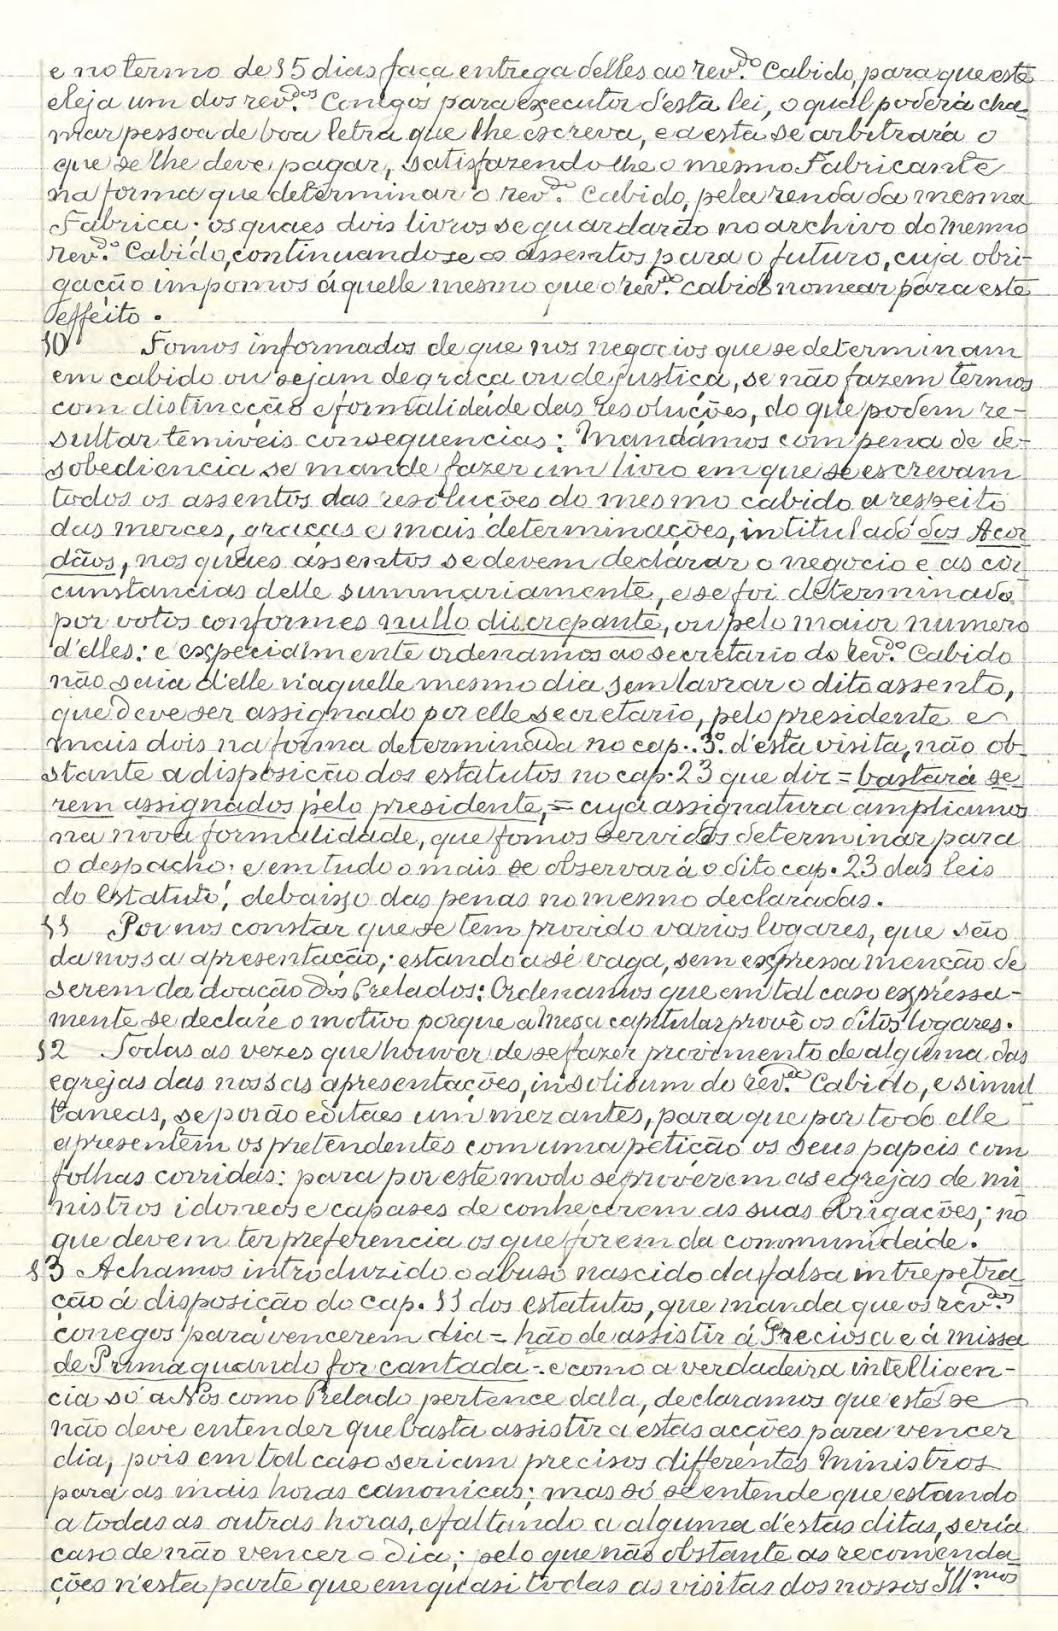 e no termo de 15 dias faça entrega delles ao rev.do Cabido, para que este
eleja um dos rev.dos Conegos para executor d'esta lei, o qual poderá cha-
mar pessoa de boa letra que lhe escreva, e a esta se arbitrará o
que se lhe deve pagar, satisfazendo-lhe o mesmo Fabricante
na forma que determinar o rev.do Cabido, pela renda da mesma
Fabrica; os quaes dois livros se guardarão no archivo do mesmo
rev.do Cabido, continuando-se os assentos para o futuro, cuja obri-
gação impomos áquelle mesmo que o rev.do cabido nomear para este
effeito.
10 Fomos informados de que nos negocios que se determinam
em cabido ou sejam de graça ou de justiça, se não fazem termos
com distincção e formalidade das resoluções, do que podem re-
sultar temiveis consequencias: Mandámos com pena de de-
sobediencia se mande fazer um livro em que se escrevam
todos os assentos das resoluções do mesmo cabido a respeito
das merces, graças e mais determinações, intitulado dos Acor
dãos, nos quaes assentos se devem declarar o negocio e as cir
cunstancias delle summariamente, e se foi determinado
por votos conformes nullo discrepante, ou pelo maior numero
d'elles: e especialmente ordenamos ao secretario do rev.do Cabido
não saia d'elle n'aquelle mesmo dia sem lavrar o dito assento,
que deve ser assignado por elle secretario, pelo presidente e
mais dois na forma determinada no cap. 3.º d'esta visita, não ob
stante a disposição dos estatutos no cap. 23 que diz = bastará se
rem assignados pelo presidente, = cuja assignatura ampliamos
na nova formalidade, que fomos servidos determinar para
o despacho; e em tudo o mais se observará o dito cap. 23 das leis
do Estatuto, debaixo das penas no mesmo declaradas.
11 Por nos constar que se tem provido varios logares, que são
da nossa apresentação, estando a sé vaga, sem expressa menção de
serem da doação dos Prelados: Ordenamos que em tal caso expressa-
mente se declare o motivo porque a Mesa capitular provê os ditos logares.
12 Todas as vezes que houver de se fazer provimento de alguma das
egrejas das nossas apresentações, in solidum do rev.do Cabido, e simul
taneas, se porão editaes um mez antes, para que por todo elle
apresentem os pretendentes com uma petição os seus papeis com
folhas corridas: para por este modo se proverem as egrejas de mi
nistros idoneos e capases de conhecerem as suas obrigações; no
que devem ter preferencia os que forem da communidade.
13 Achamos introduzido o abuso nascido da falsa intrepetra
ção á disposição do cap. 11 dos estatutos, que manda que os rev.dos
conegos para vencerem dia = hão de assistir á Preciosa e á missa
de Prima quando for cantada - e como a verdadeira intelligen-
cia só a Nós como Prelado pertence dala, declaramos que este se
não deve entender que basta assistir a estas acções para vencer
dia, pois em tal caso seriam precisos differentes Ministros
para as mais horas canonicas; mas só se entende que estando
a todas as outras horas, e faltando a alguma d'estas ditas, seria
caso de não vencer o dia; pelo que não obstante as recomenda
ções n'esta parte que em quasi todas as visitas dos nossos Ill.mos